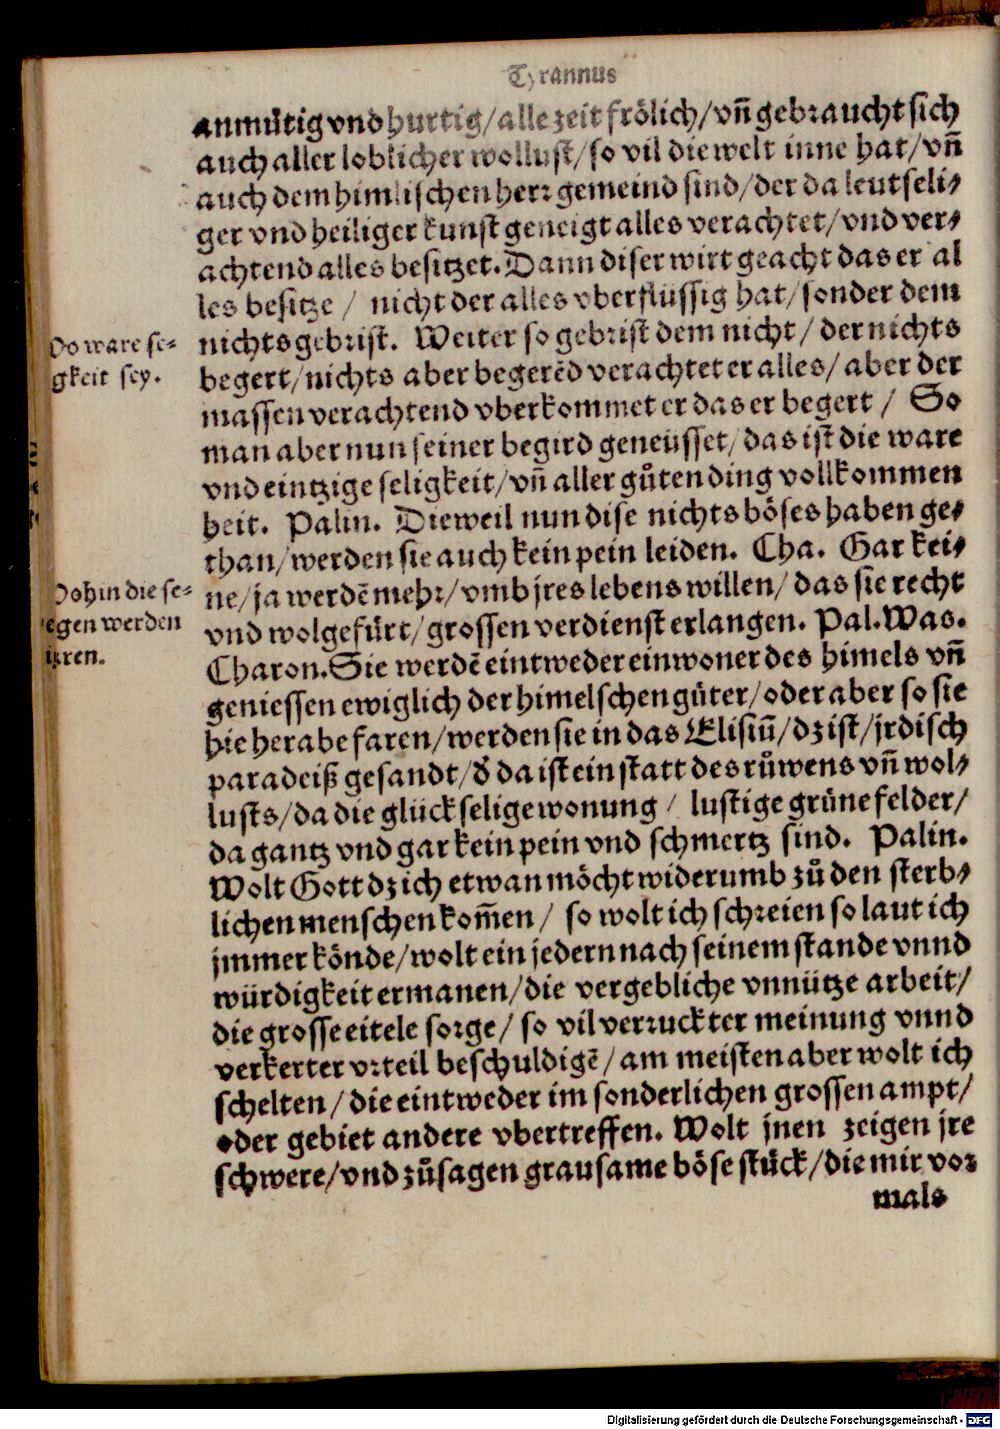 Tyrannus
anmůtig vnd hurtig/alle zeit frölich/vñ gebraucht sich
auch aller loblicher wollust/so vil die welt inne hat/vñ
auch dem himlischen herr gemeind sind/der da leutseli⸗
ger vnd heiliger kunst geneigt alles verachtet/vnd ver⸗
achtend alles besitzet. Dann diser wirt geacht das er al
les besitze / nicht der alles vberflüssig hat/sonder dem
nichts gebrist. Weiter so gebrist dem nicht / der nichts
begert/nichts aber begerẽd verachtet er alles/ aber der
massen verachtend vberkommet er das er begert / So
man aber nun seiner begird geneüsset/das ist die ware
vnd eintzige seligkeit/vñ aller gůten ding vollkommen
heit. Palin. Dieweil nun dise nichts böses haben ge⸗
than/werden sie auch kein pein leiden. Cha. Gar kei⸗
ne/ja werdẽ mehr/vmb jres lebens willen/ das sie recht
vnd wolgefürt/grossen verdienst erlangen. Pal. Was.
Charon. Sie werdẽ eintweder einwoner des himels vñ
geniessen ewiglich der himelschen güter/oder aber so sie
hie herabe faren/werden sie in das Elisiũ/dz ist/jrdisch
paradeiß gesandt/d̕ da ist ein statt des růwens vñ wol⸗
lusts/da die glückselige wonung / lustige grüne felder/
da gantz vnd gar kein pein vnd schmertz sind. Palin.
Wolt Gott dz ich etwan möcht widerumb zů den sterb⸗
lichen menschen kom̃en/ so wolt ich schreien so laut ich
jmmer könde/wolt ein jedern nach seinem stande vnnd
würdigkeit ermanen/die vergebliche vnnütze arbeit/
die grosse eitele sorge/ so vil verruckter meinung vnnd
verkerter vrteil beschuldigẽ/am meisten aber wolt ich
schelten/die eintweder im sonderlichen grossen ampt/
oder gebiet andere vbertreffen. Wolt jnen zeigen jre
schwere/vnd zůsagen grausame böse stück/die mir vor
mals
Wo ware se⸗
gkeit sey.
Wohin die se⸗
gen werden
uren.
Digitalisierung gefördert durch die Deutsche Forschungsgemeinschaft - DFG